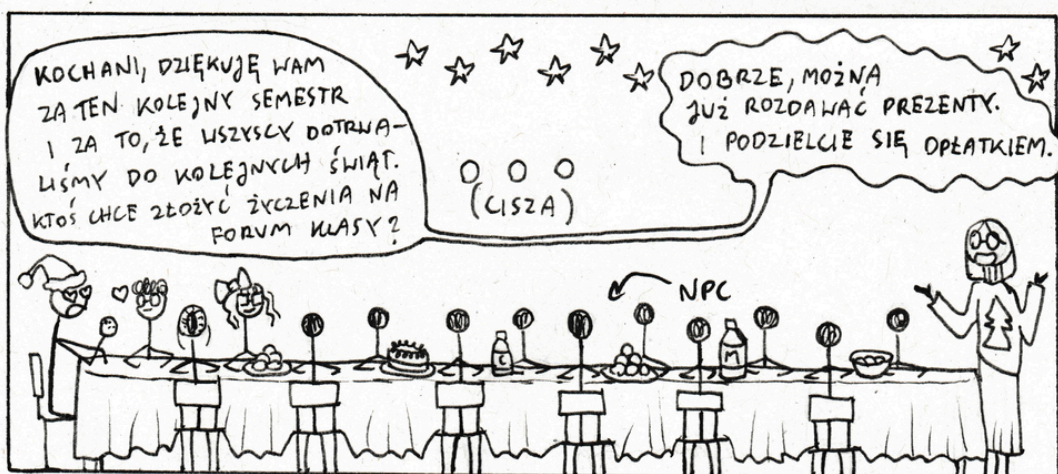 KOCHANI, DZIĘKUJĘ WAM
ZA TEN KOLEJNY SEMESTR
I ZA TO, ŻE WSZYSCY DOTRWA-
LIŚMY DO KOLEJNYCH ŚWIĄT.
KTOŚ CHCE ZŁOŻYĆ ŻYCZENIA NA
FORUM KLASY?
(CISZA)
DOBRZE, MOŻNA
JUŻ ROZDAWAĆ PREZENTY.
I PODZIELCIE SIĘ OPŁATKIEM.
NPC
C
M